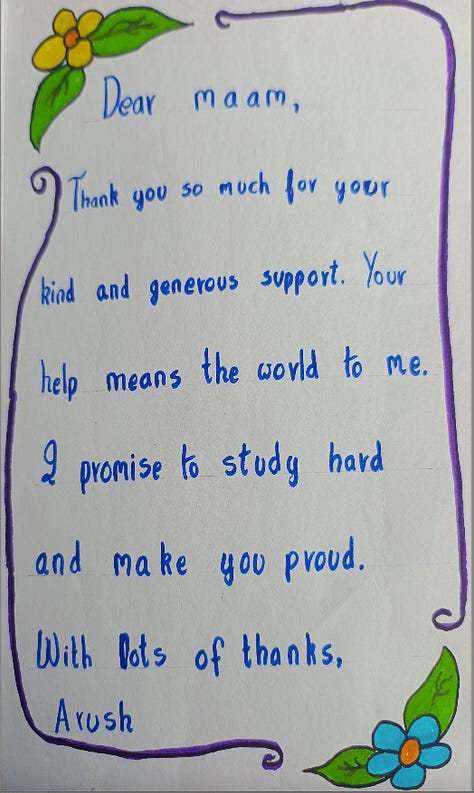 Dear maam,
Thank you so much for your
kind and generous support. Your
help means the world to me.
I promise to study hard
and make you proud.
With lots of thanks,
Arush